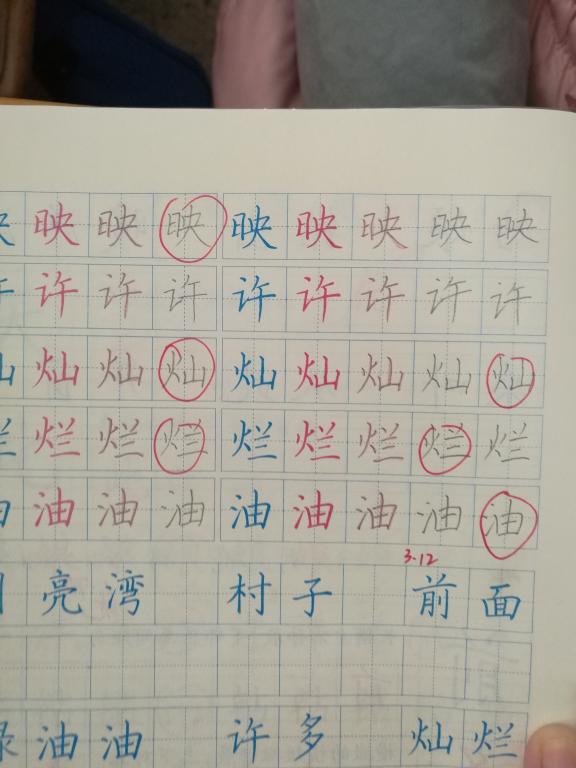 映 映 映 映 映 映 映 映 映
许 许 许 许 许 许 许 许
灿 灿 灿 灿 灿 灿 灿 灿
烂 烂 烂 烂 烂 烂 烂 烂
油 油 油 油 油 油 油 油
3.12
亮 湾 村 子 前 面
绿 油 油 许 多 灿 烂